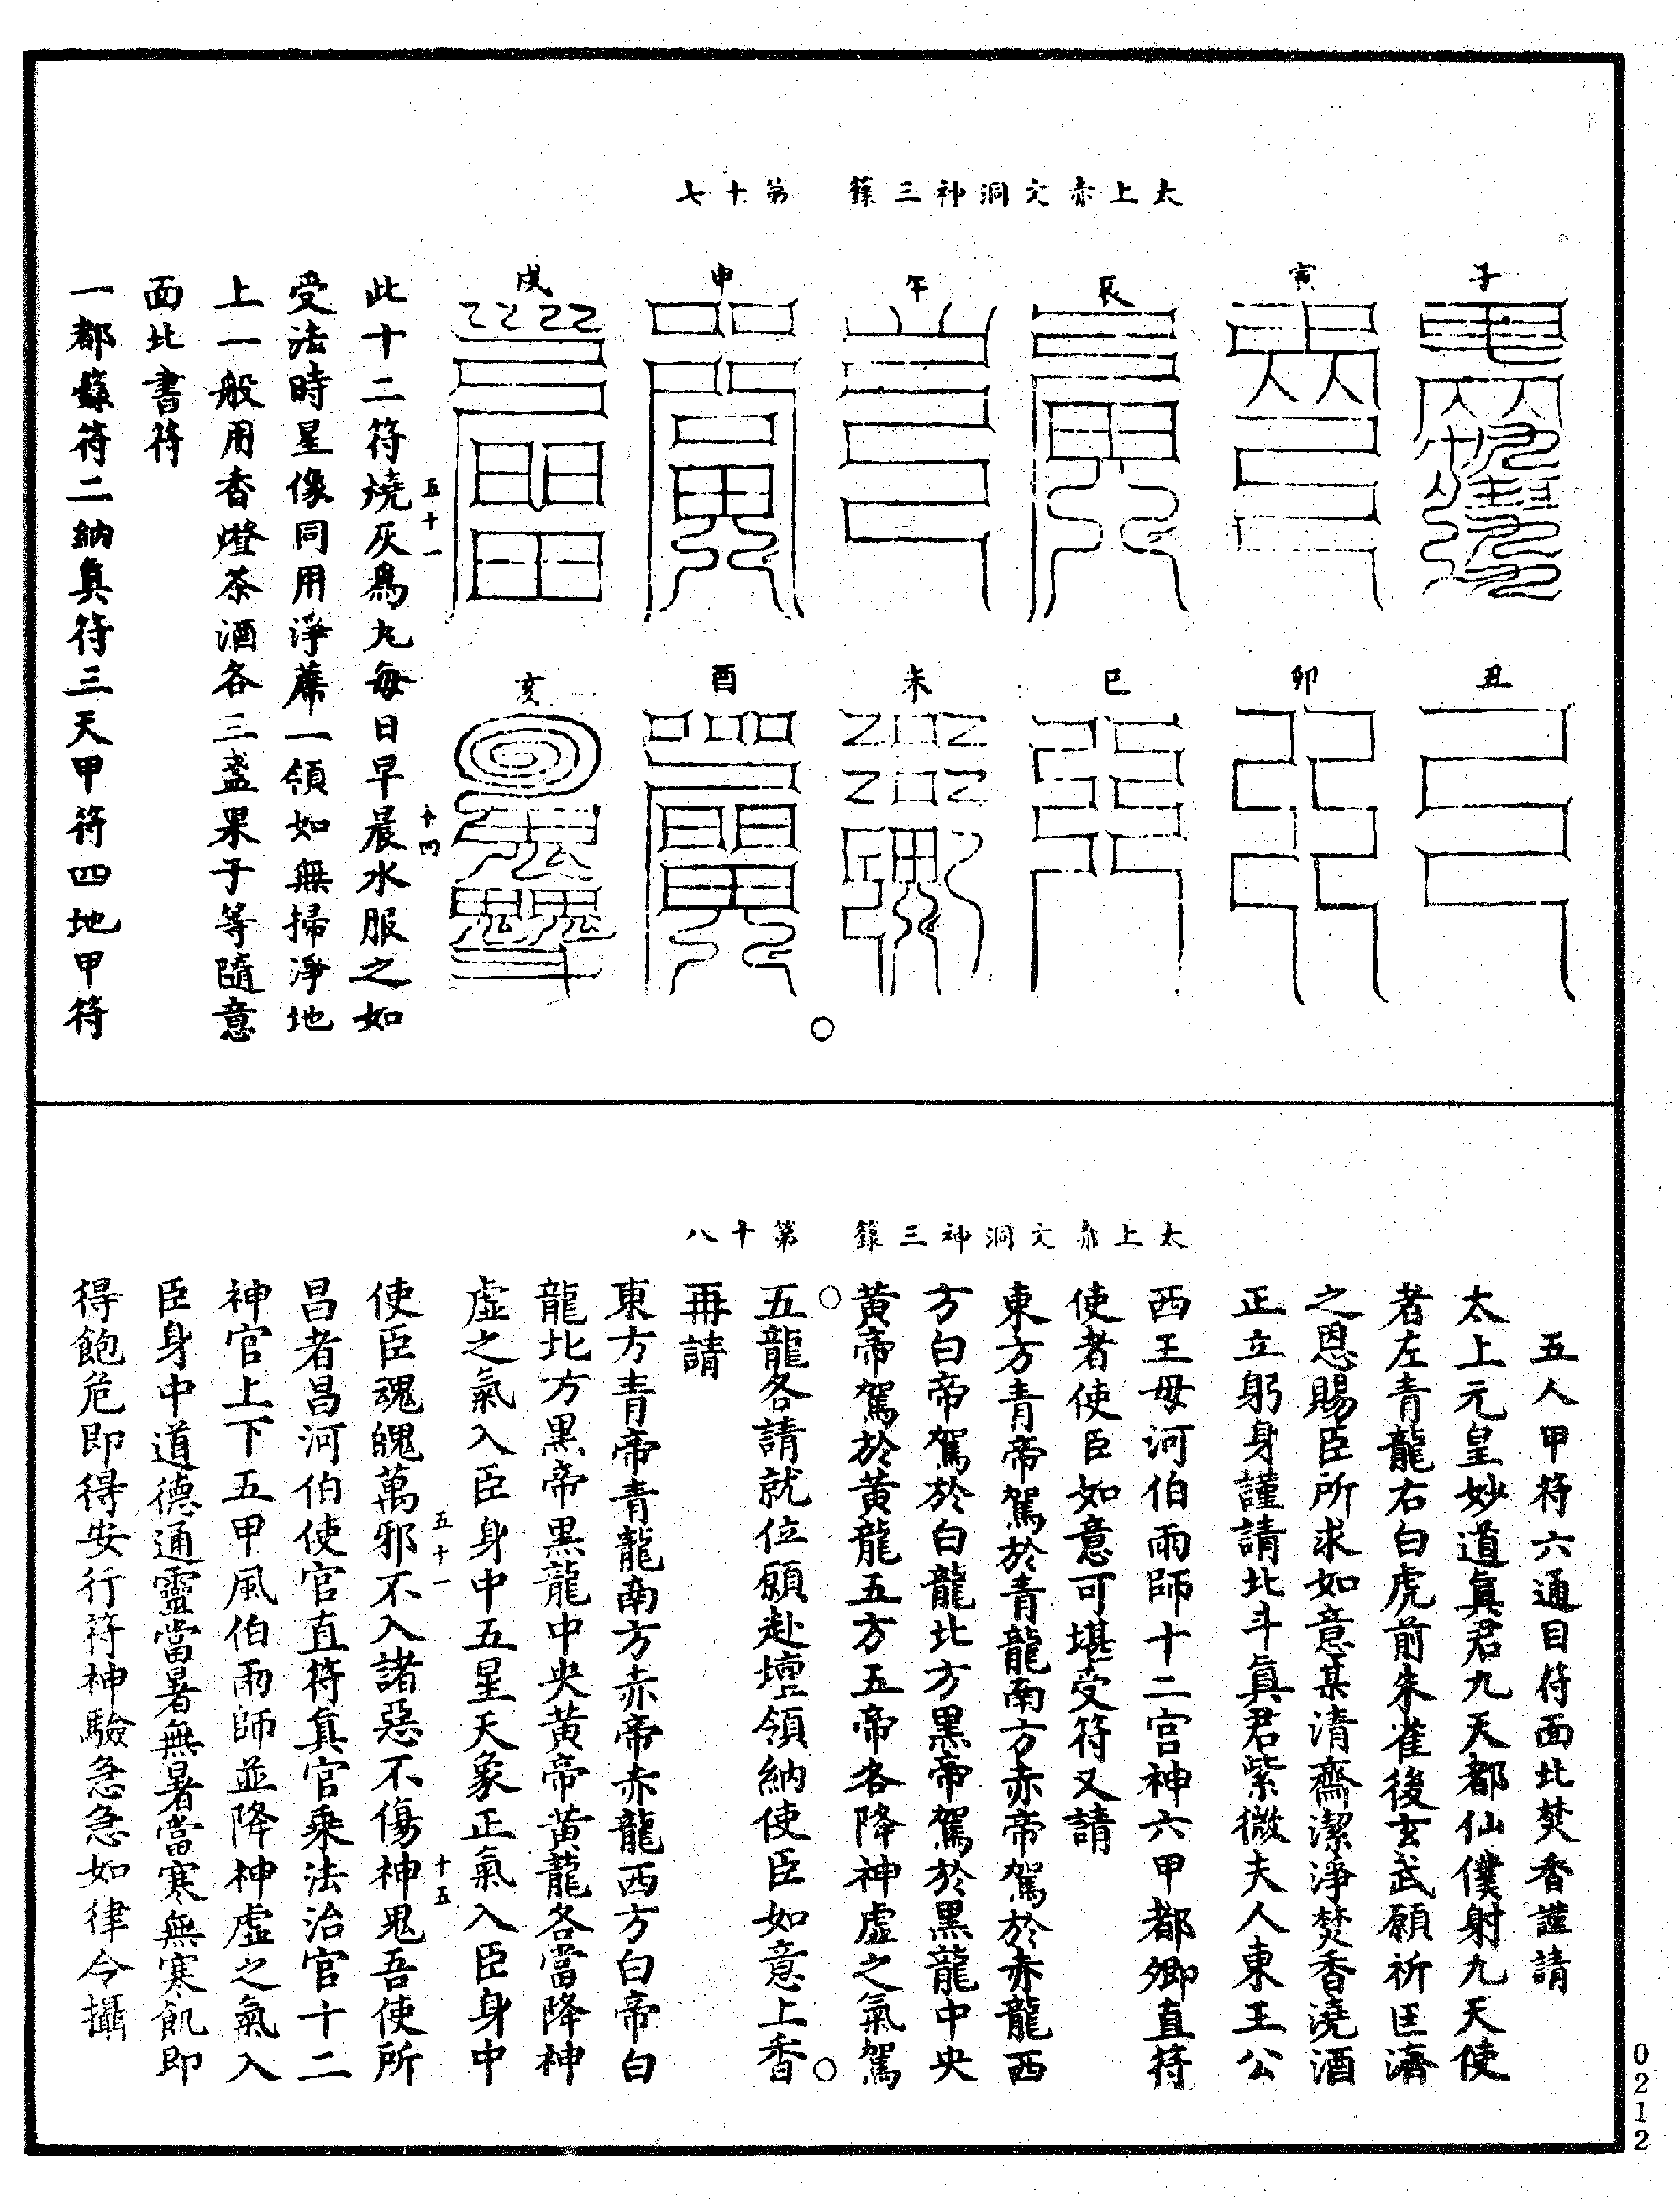 太上赤文洞神三籙　第十七
子
丑
寅
卯
辰
巳
午
未
申
酉
戌
亥
五十一
十四
此十二符燒灰爲丸每日早晨水服之如
受法時星像同用淨蓆一領如無掃淨地
上一般用香燈茶酒各三盞果子等隨意
面北書符
一都籙符二納真符三天甲符四地甲符
太上赤文洞神三籙　第十八
五人甲符六通目符面北焚香謹請
太上元皇妙道真君九天都仙僕射九天使
者左青龍右白虎前朱雀後玄武願祈匡濟
之恩賜臣所求如意某清齋潔淨焚香澆酒
正立躬身謹請北斗真君紫微夫人東王公
西王母河伯雨師十二宮神六甲都卿直符
使者使臣如意可堪受符又請
東方青帝駕於青龍南方赤帝駕於赤龍西
方白帝駕於白龍北方黑帝駕於黑龍中央
黃帝駕於黃龍五方五帝各降神虛之氣駕
五龍各請就位願赴壇領納使臣如意上香
再請
東方青帝青龍南方赤帝赤龍西方白帝白
龍北方黑帝黑龍中央黃帝黃龍各當降神
虛之氣入臣身中五星天象正氣入臣身中
五十一
十五
使臣魂魄萬邪不入諸惡不傷神鬼吾使所
昌者昌河伯使官直符真官乘法治官十二
神官上下五甲風伯雨師並降神虛之氣入
臣身中道德通靈當暑無暑當寒無寒飢即
得飽危即得安行符神驗急急如律令攝
0212